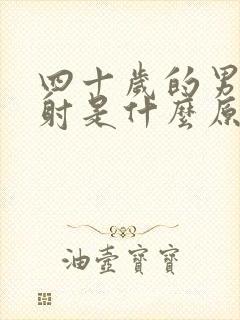 四十歲的男
射是什麼原
油壺寶寶